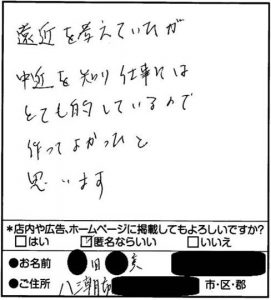 遠近を考えていたが
中近を知り仕事には
とても的しているので
作ってよかったと
思います
*店内や広告、ホームページに掲載してもよろしいですか?
□はい ☑匿名ならいい □いいえ
●お名前 田
●ご住所 八潮市 市・区・郡